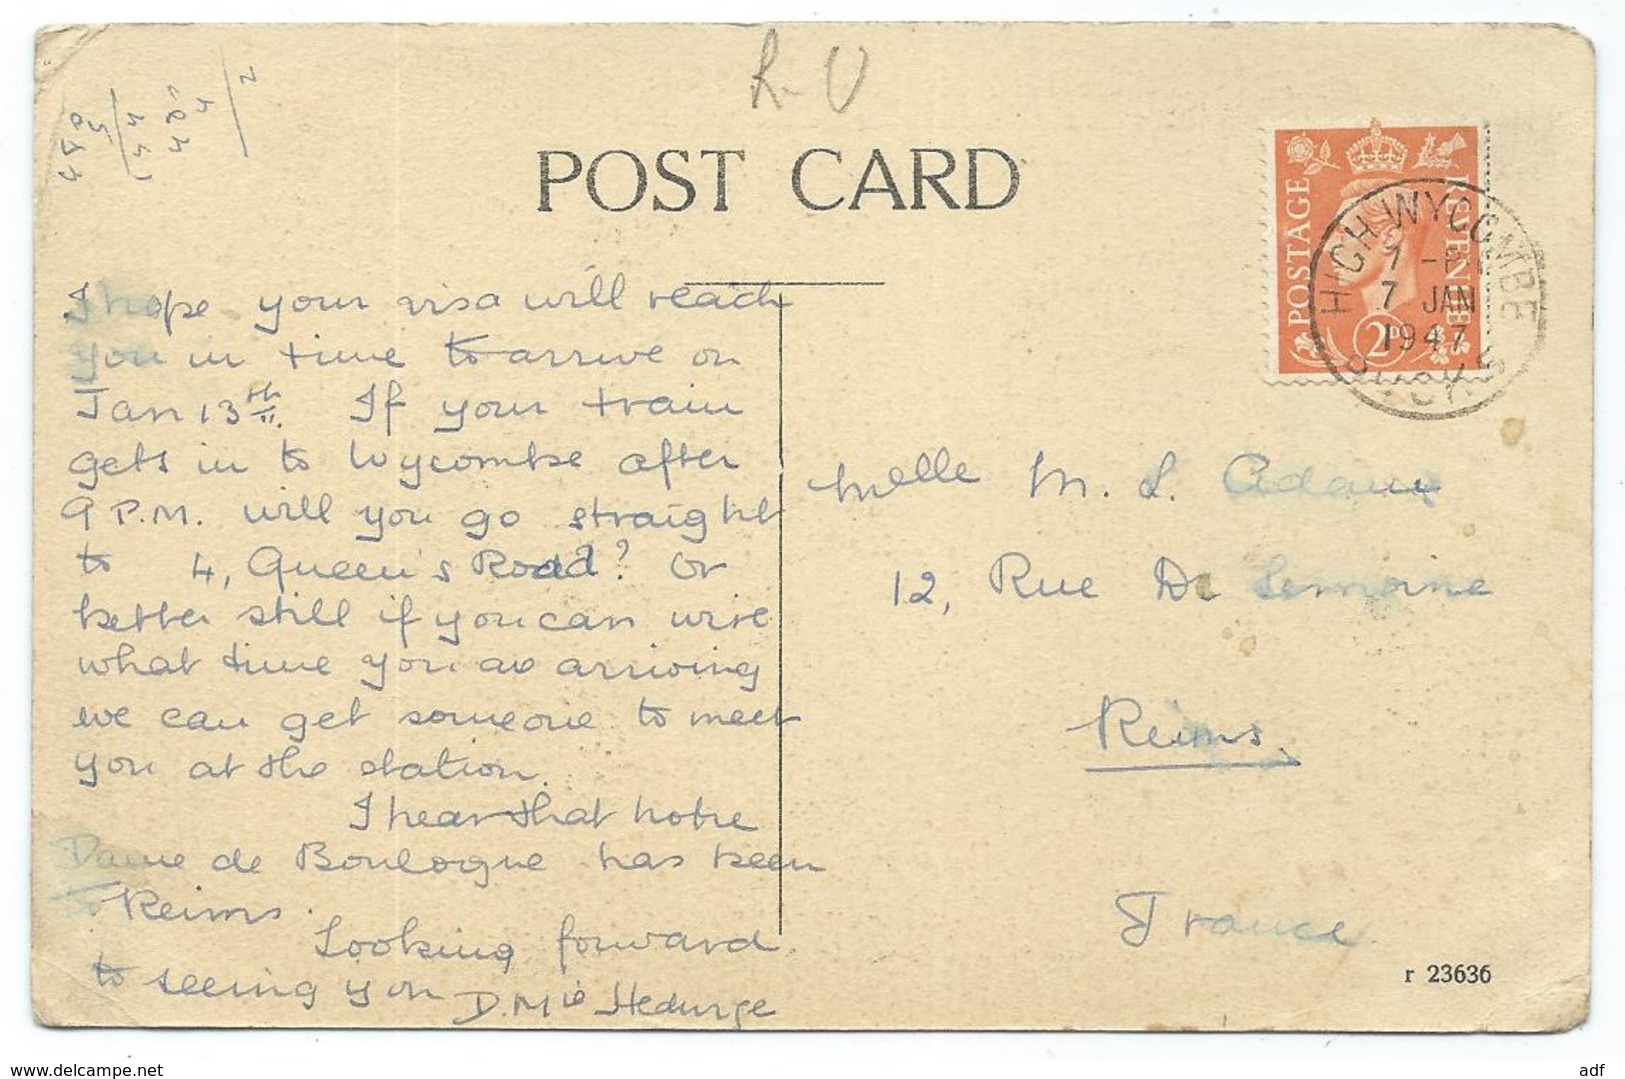 R-U
POST CARD
POSTAGE
REVENUE
2D
HIGH WYCOMBE
7 JAN
1947
BUCKS
I hope your visa will reach
you in time to arrive on
Jan 13th. If your train
gets in to Wycombe after
9 P.M. will you go straight
to 4, Queen's Road? Or
better still if you can wire
what time you are arriving
we can get someone to meet
you at the station.
I hear that Notre
Dame de Boulogne has been
to Reims.
Looking forward
to seeing you D. Mie
Melle M. L. Adam
12, Rue De Semoine
Reims.
France
r 23636
www.delcampe.net
adf